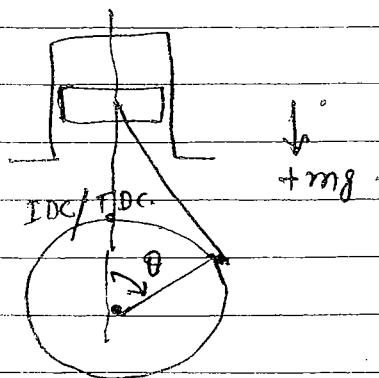 + mg
IDC/TDC.
θ